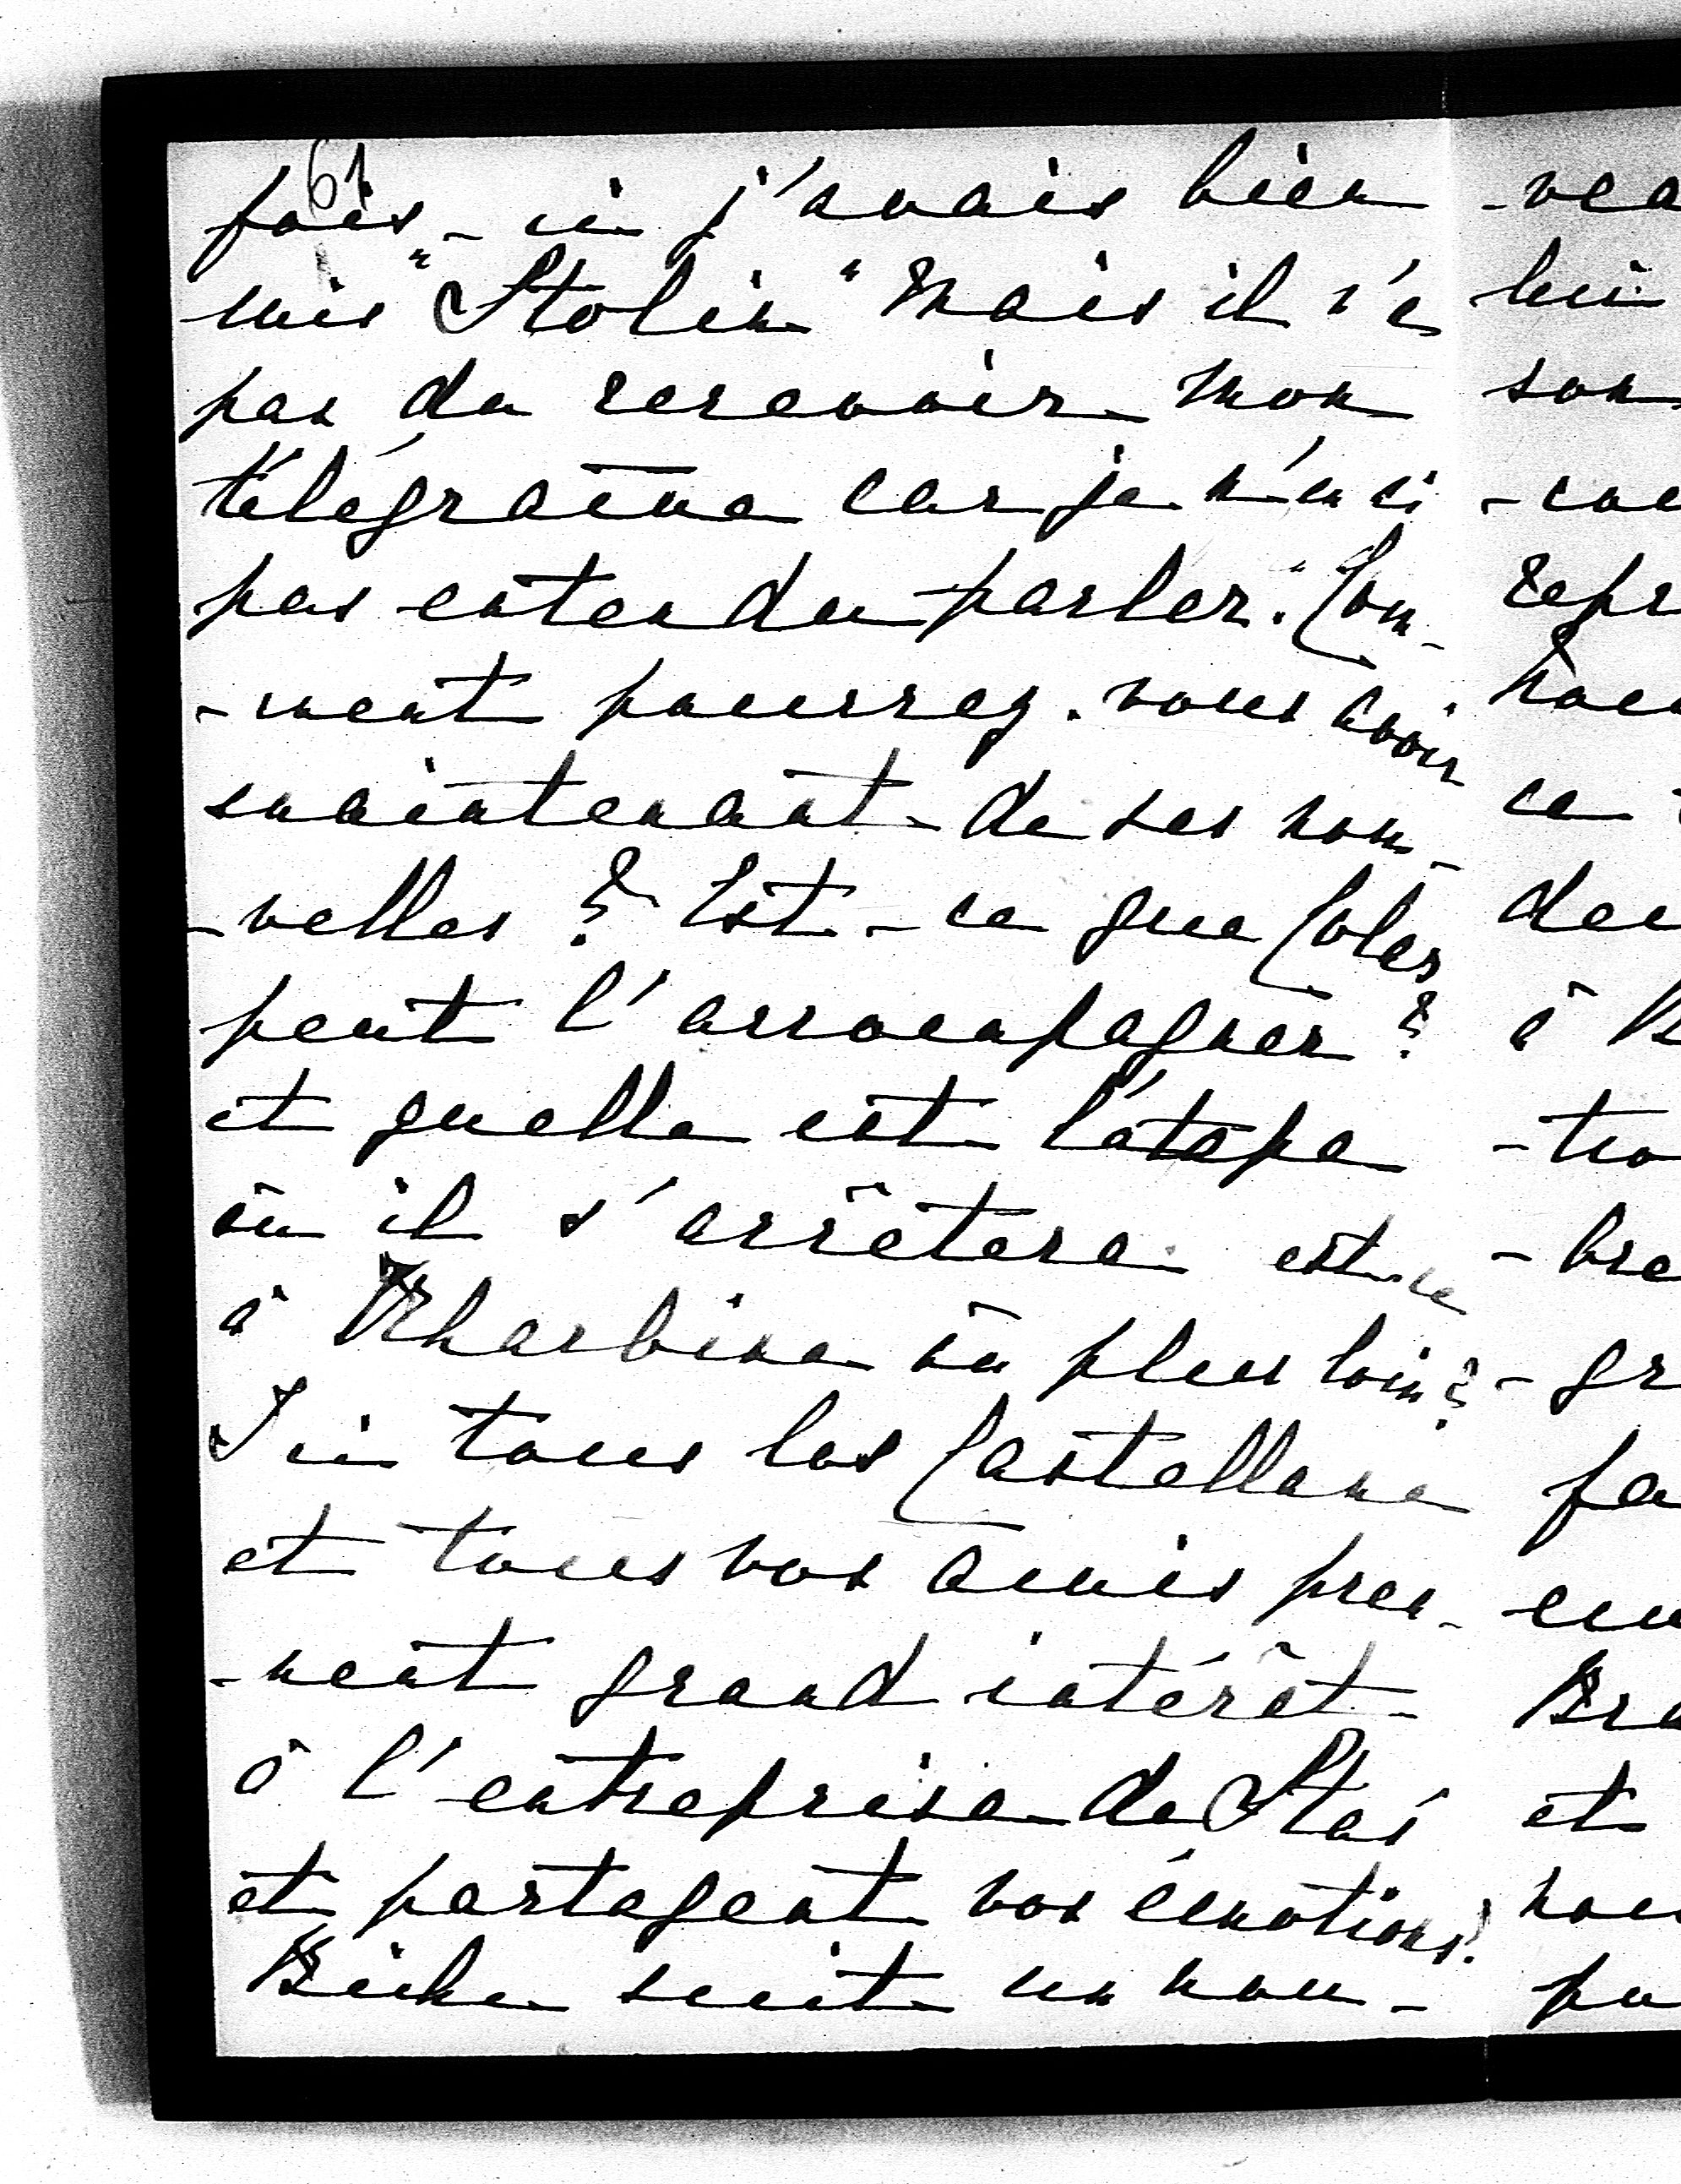 61
fois - ci j'avais bien
mis "Stolin" Mais il n'a
pas du recevoir mon
télégramme car je n'en ai
pas entendu parler. Com-
-ment pourrez-vous avoir
maintenant de ses nou-
-velles ? Est-ce que Coles
peut l'accompagner ?
et quelle est l'étape
où il s'arrêtera est-ce
à Kharbine ou plus loin ?
Ici tous les Castellane
et tous vos amis pren-
-nent grand intérêt
à l'entreprise de Stas
et partagent vos émotions.
Biche suit un nou-